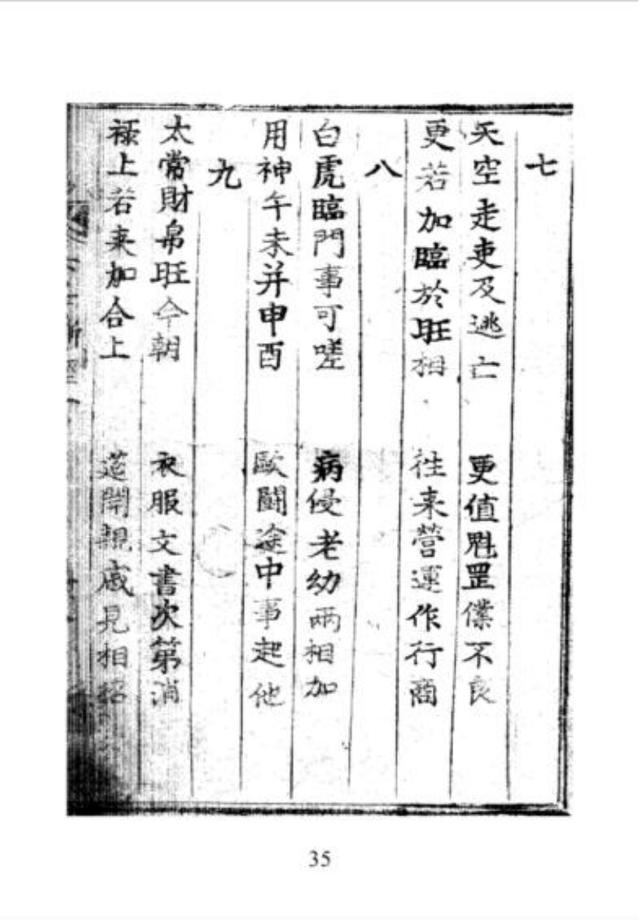 七
天空走吏及逃亡　更值魁罡僕不良
更若加臨於旺相　往来營運作行商
八
白虎臨門事可嗟　病侵老幼兩相加
用神午未并申酉　歐闘途中事起他
九
太常財帛旺今朝　衣服文書次第消
禄上若来加合上　筵開親戚見相招
35